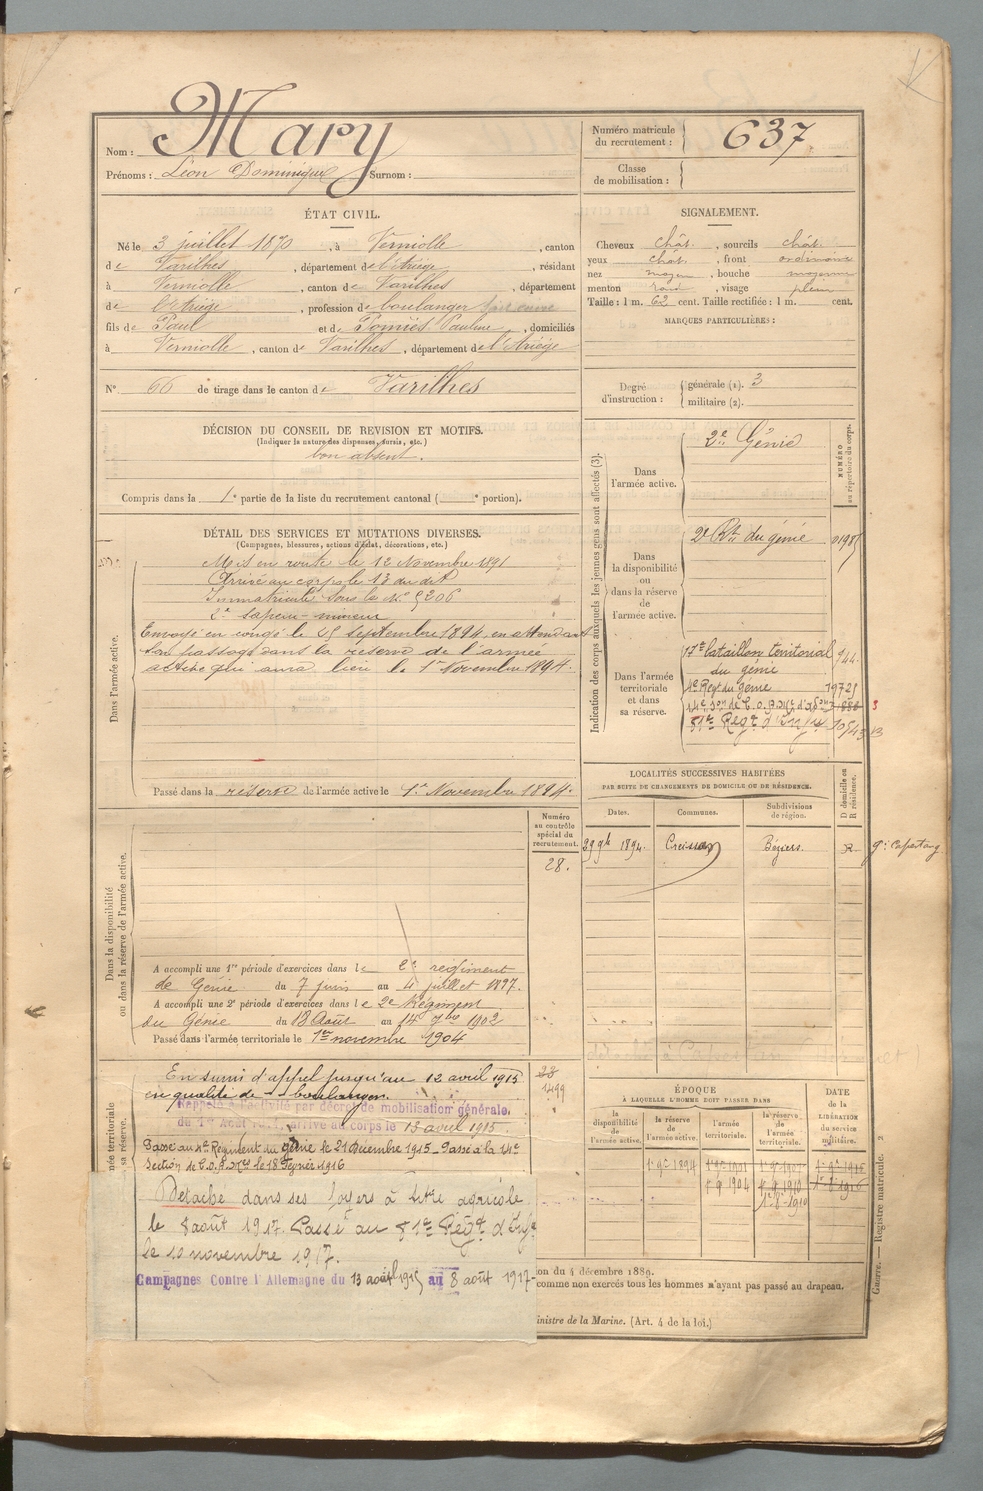 Nom : Mary
Prénoms : Léon Dominique Surnom :
Numéro matricule du recrutement : 637
Classe de mobilisation :
ÉTAT CIVIL.
Né le 3 juillet 1870, à Verniolle, canton
de Varilhes, département de l'Ariège, résidant
à Verniolle, canton de Varilhes, département
de l'Ariège, profession de boulanger
fils de Paul et de Pomiès Pauline, domiciliés
à Verniolle, canton de Varilhes, département de l'Ariège
N° 66 de tirage dans le canton de Varilhes
SIGNALEMENT.
Cheveux chât. , sourcils chât.
yeux chât. , front ordinaire
nez moyen , bouche moyenne
menton rond , visage plein
Taille : 1 m. 62 cent. Taille rectifiée : 1 m. cent.
MARQUES PARTICULIÈRES :
Degré d'instruction : générale (1). 3
militaire (2).
DÉCISION DU CONSEIL DE REVISION ET MOTIFS.
(Indiquer la nature des dispenses, sursis, etc.)
bon absent.
Compris dans la 1e partie de la liste du recrutement cantonal ( e portion).
DÉTAIL DES SERVICES ET MUTATIONS DIVERSES.
(Campagnes, blessures, actions d'éclat, décorations, etc.)
Dans l'armée active.
Mis en route le 12 Novembre 1891
Arrivé au corps le 13 du dit
Immatriculé sous le N° 5206
2e sapeur-mineur
Envoyé en congé le 25 septembre 1894, en attendant
son passage dans la réserve de l'armée
active qui aura lieu le 1er Novembre 1894.
Passé dans la réserve de l'armée active le 1er Novembre 1894.
Indication des corps auxquels les jeunes gens sont affectés (3).
NUMÉRO au répertoire du corps.
Dans l'armée active.
2e Génie
Dans la disponibilité ou dans la réserve de l'armée active.
2e Rt du génie
Dans l'armée territoriale et dans sa réserve.
17e bataillon territorial 944
du génie
4e Regt du génie 19725
14e son de C.O.A.
81e Regt d'Infie
LOCALITÉS SUCCESSIVES HABITÉES
PAR SUITE DE CHANGEMENTS DE DOMICILE OU DE RÉSIDENCE.
Dates. Communes. Subdivisions de région. D domicile ou R résidence.
1894. Creissan Béziers. R gie Capestang
Numéro au contrôle spécial du recrutement.
28.
Dans la disponibilité ou dans la réserve de l'armée active.
A accompli une 1re période d'exercices dans le 2e régiment
de Génie du 7 juin au 4 juillet 1897.
A accompli une 2e période d'exercices dans le 2e Régiment
du Génie du 18 Août au 14 7bre 1902
Passé dans l'armée territoriale le 1er novembre 1904
En sursis d'appel jusqu'au 12 avril 1915
en qualité de boulanger.
28
1499
Rappelé à l'activité par décret de mobilisation générale.
du 1er Août 1914, arrivé au corps le 13 avril 1915.
Passé au 4e Régiment du génie le 21 Décembre 1915 Passé à la 14e
Section de C.O.A. le 18 Février 1916
Détaché dans ses foyers à titre agricole
le 8 août 1917. Passé au 81e Regt d'Infie
le 10 novembre 1917.
Campagnes Contre l'Allemagne du 13 avril 1915 au 8 août 1917
ÉPOQUE
À LAQUELLE L'HOMME DOIT PASSER DANS
la disponibilité de l'armée active. la réserve de l'armée active. l'armée territoriale. la réserve de l'armée territoriale.
DATE de la LIBÉRATION du service militaire.
ion du 4 décembre 1889.
comme non exercés tous les hommes n'ayant pas passé au drapeau.
inistre de la Marine. (Art. 4 de la loi.)
Guerre. — Registre matricule. 2